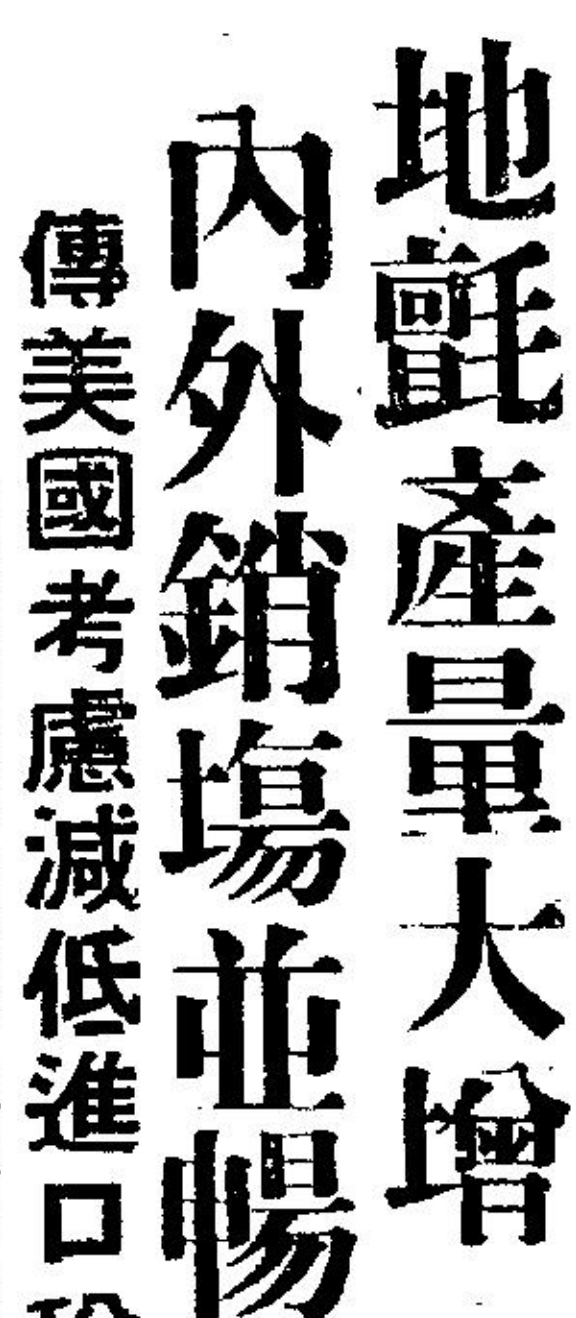 地氈產量大增
內外銷塲並暢
傳美國考慮減低進口